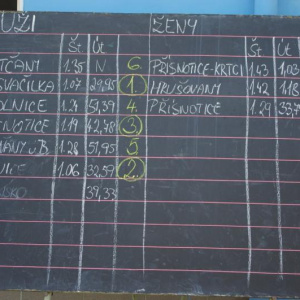 UŽI ŽENY
Št Út Št Út
TČANY 1.35 N 6 PŘÍSNOTICE-KRTCI 1.43 1.03
SVAČILKA 1.07 29,95 1. HRUŠOVANY 1.42 1.18
OLNICE 1.24 51,39 4 PŘÍSNOTICE 1.29 33,7
NOTICE 1.19 42,78 3.
ÁNY J.B 1.28 51,95 5
ICE 1.06 32,59 2.
SKO 39,33